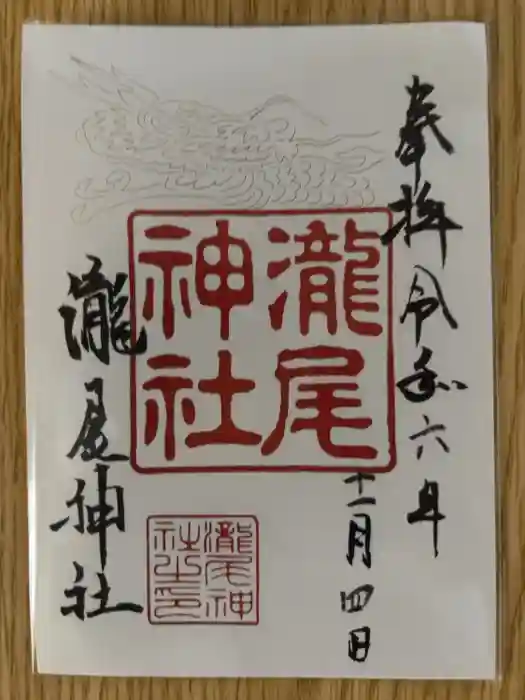 奉拝 令和六年
十一月四日
瀧尾
神社
瀧尾神社
瀧尾神
社之印